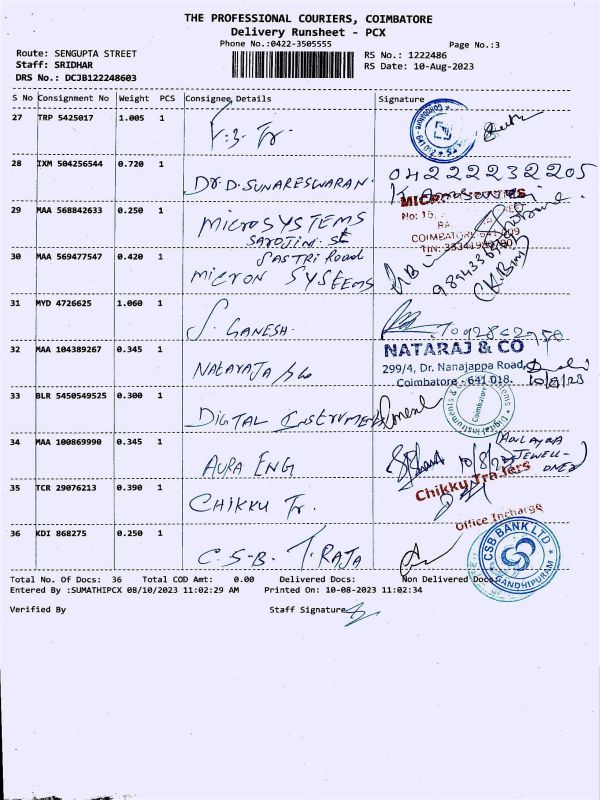 THE PROFESSIONAL COURIERS, COIMBATORE
Delivery Runsheet - PCX
Phone No.:0422-3505555
Page No.:3
Route: SENGUPTA STREET
Staff: SRIDHAR
DRS No.: DCJB122248603
RS No.: 1222486
RS Date: 10-Aug-2023
S No Consignment No Weight PCS Consignee Details Signature
27 TRP 5425017 1.005 1
28 IXM 504256544 0.720 1
DR. D. SUNARESWARAN.
04222232205
29 MAA 568842633 0.250 1
MICROSYSTEMS
SAROJINI St
COIMBATORE
30 MAA 569477547 0.420 1
SASTRI Road
MICRON SYSTEEMS
31 MYD 4726625 1.060 1
S. GANESH.
32 MAA 104389267 0.345 1
NATARAJA
NATARAJ & CO
299/4, Dr. Nanajappa Road,
Coimbatore - 641 018.
10/8/23
33 BLR 5450549525 0.300 1
DIGITAL INSTRUMENT
Coimbatore
34 MAA 100869990 0.345 1
AURA ENG
10/8/23
35 TCR 29076213 0.390 1
CHIKKU Tr.
Chikku Traders
36 KDI 868275 0.250 1
C.S.B. T. RAJA
Office Incharge
CSB BANK LTD
GANDHIPURAM
Total No. Of Docs: 36 Total COD Amt: 0.00 Delivered Docs: Non Delivered Docs
Entered By :SUMATHIPCX 08/10/2023 11:02:29 AM Printed On: 10-08-2023 11:02:34
Verified By Staff Signature